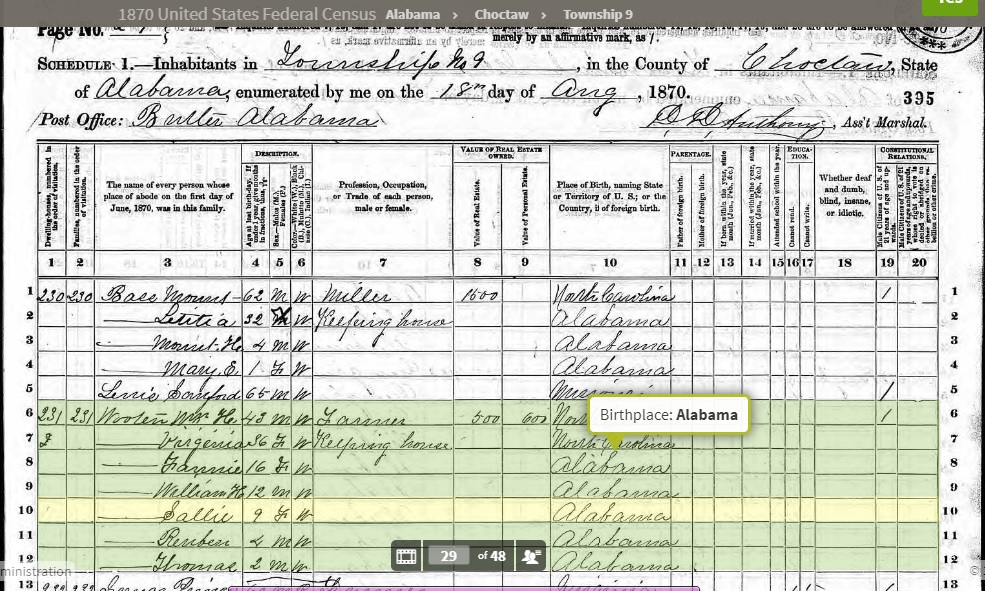 1870 United States Federal Census Alabama › Choctaw › Township 9
YES
Page No.
merely by an affirmative mark, as /.
SCHEDULE 1.—Inhabitants in Township No 9, in the County of Choctaw, State
of Alabama, enumerated by me on the 18th day of Aug, 1870. 395
Post Office: Butler Alabama D. D. Anthony, Ass't Marshal.
DESCRIPTION. VALUE OF REAL ESTATE OWNED. PARENTAGE. EDUCATION. CONSTITUTIONAL RELATIONS.
Dwelling-houses, numbered in the order of visitation.
Families, numbered in the order of visitation.
The name of every person whose place of abode on the first day of June, 1870, was in this family.
Age at last birth-day.
Sex.—Males (M.), Females (F.)
Profession, Occupation, or Trade of each person, male or female.
Value of Real Estate.
Value of Personal Estate.
Place of Birth, naming State or Territory of U. S.; or the Country, if of foreign birth.
Father of foreign birth.
Mother of foreign birth.
Attended school within the year.
Cannot read.
Cannot write.
Whether deaf and dumb, blind, insane, or idiotic.
1 2 3 4 5 6 7 8 9 10 11 12 13 14 15 16 17 18 19 20
1 230 230 Bass Mount 62 M W Miller 1500 North Carolina 1 1
2 Letitia 32 W Keeping house Alabama 2
3 Mount. H. 4 M W Alabama 3
4 Mary E. 1 F W Alabama 4
5 Lewis Sanford 65 M W 1 5
6 231 231 Wooten Wm H. 43 M W Farmer 500 600 Nor 1 6
Birthplace: Alabama
7 Virginia 36 F W Keeping house North Carolina 7
8 Fannie 16 F W Alabama 8
9 William H 12 M W Alabama 9
10 Sallie 9 F W Alabama 10
11 Reuben 4 M W Alabama 11
12 Thomas 2 M W Alabama 12
29 of 48
ministration ©
13 13